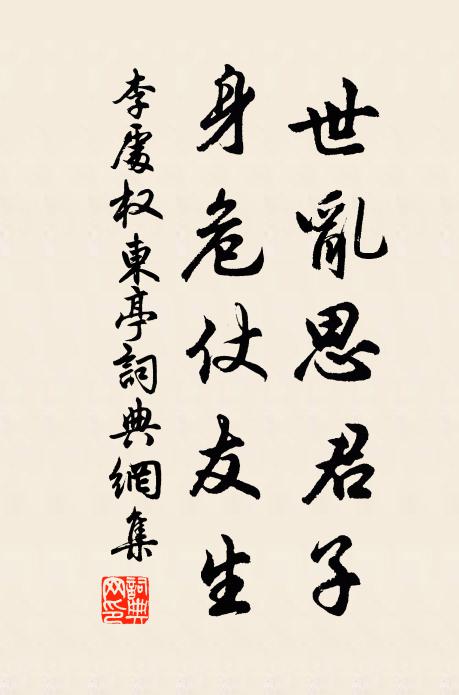 世亂思君子
身危仗友生
李處权東亭詞典網集
詞典網印